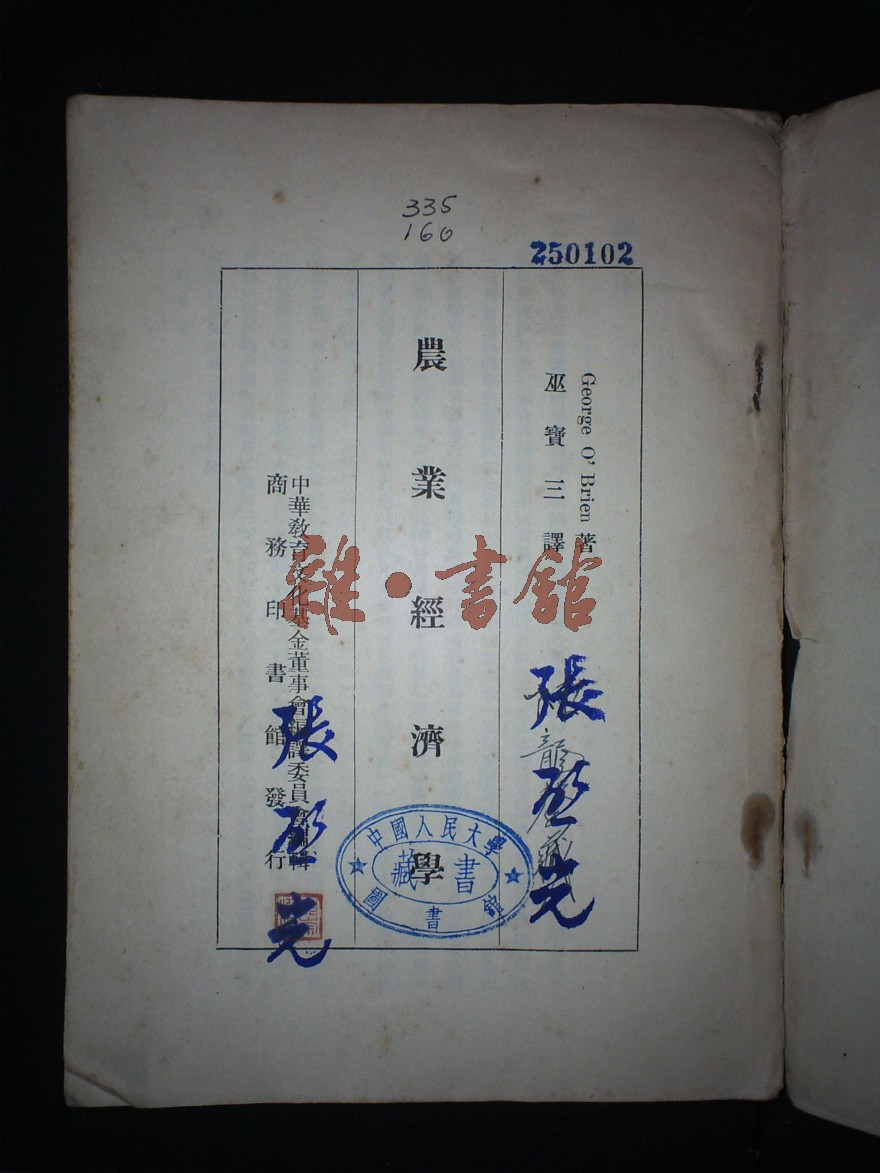 335
160
250102
George O'Brien 著
巫寶三譯
農業經濟學
中華教育文化基金董事會編譯委員會編輯
商務印書館發行
雜·書館
中國人民大學
藏書
圖書館